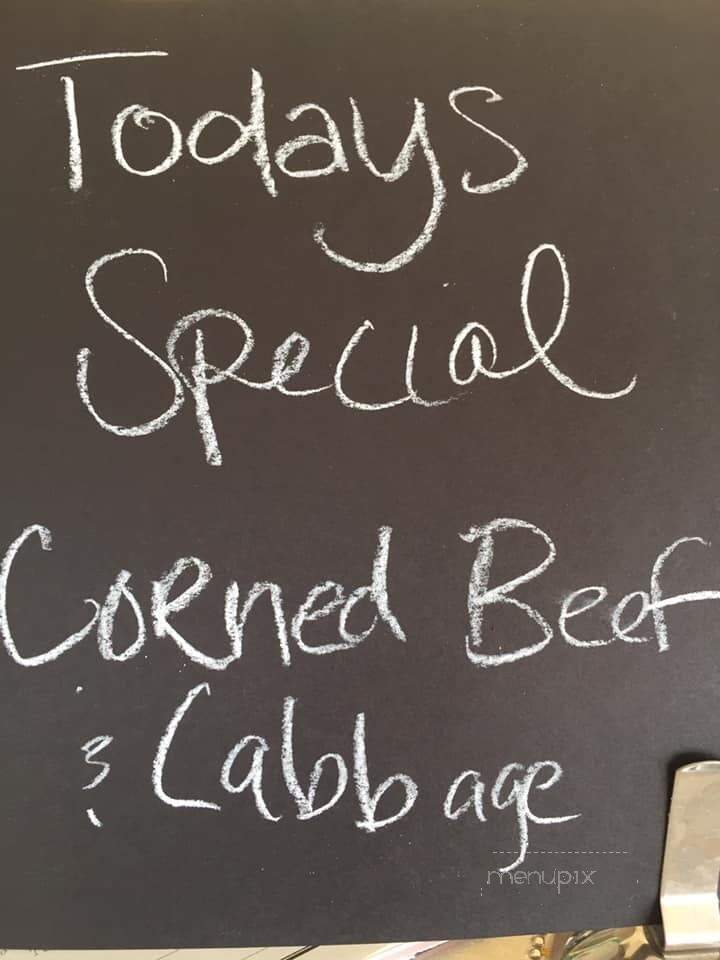 Todays
Special
Corned Beef
& Cabbage
menupix